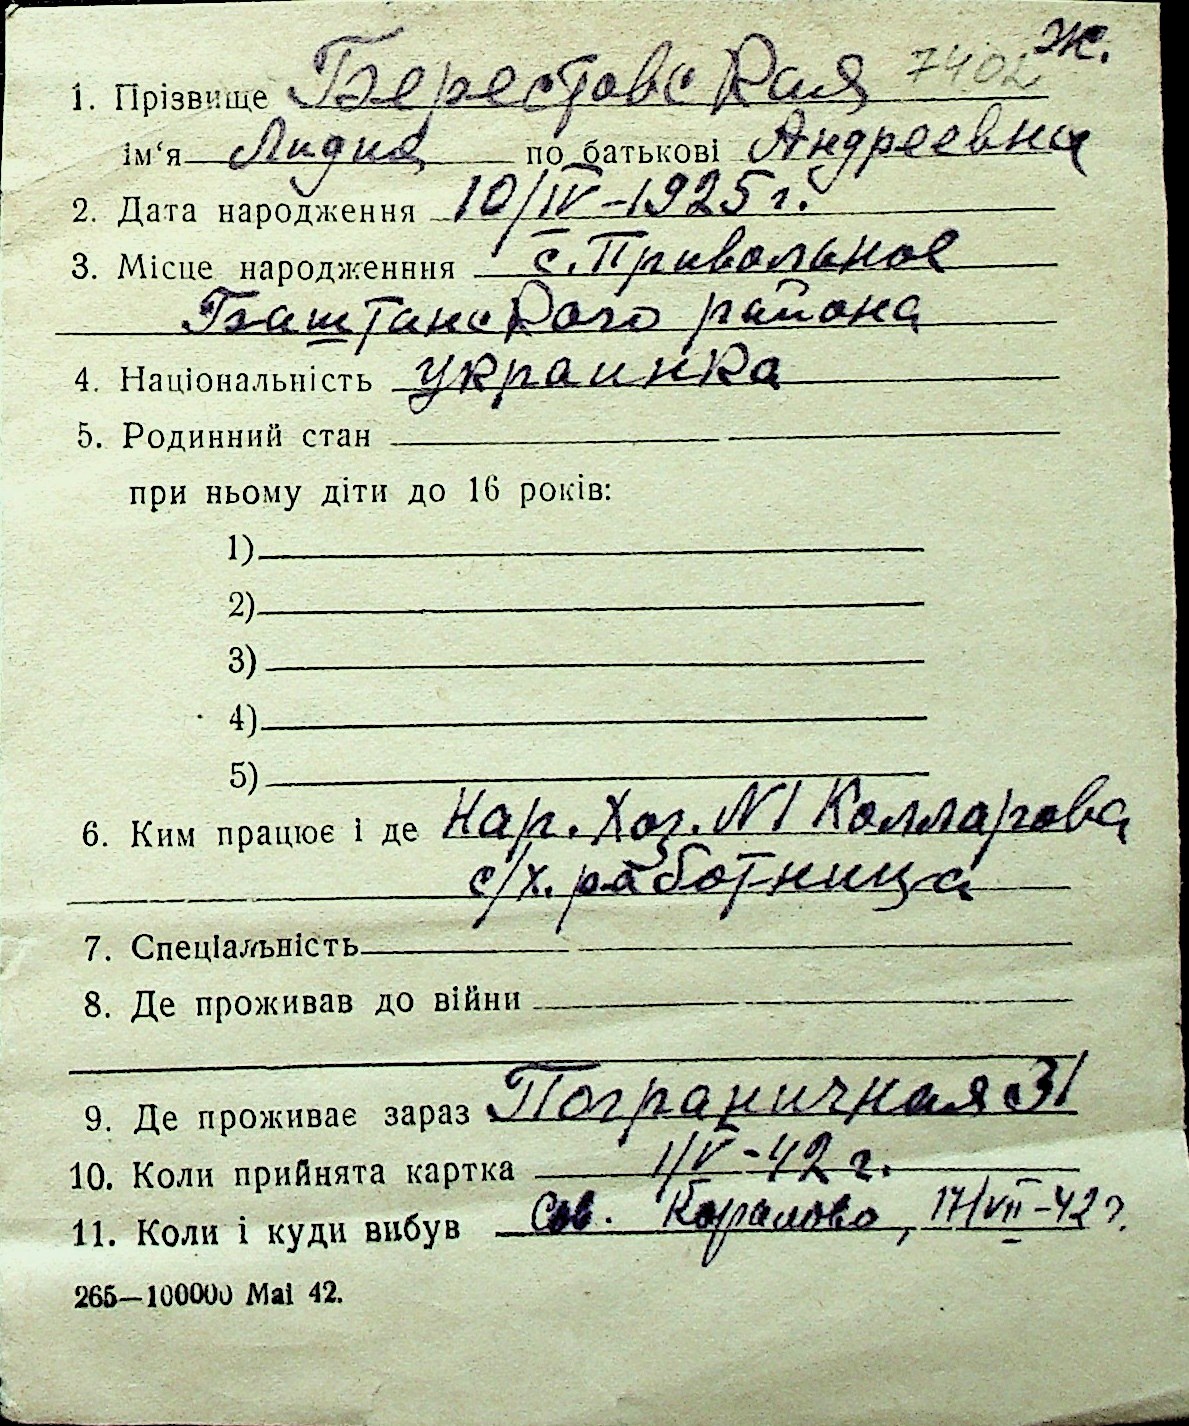 7402 ж.
1. Прізвище Берестовская
ім‘я Лидия по батькові Андреевна
2. Дата народження 10/IV-1925 г.
3. Місце народженння с. Привольное
Баштанского района
4. Національність украинка
5. Родинний стан
при ньому діти до 16 років:
1)
2)
3)
4)
5)
6. Ким працює і де Нар. Хоз. N1 Колларова
с/х. работница
7. Спеціальність
8. Де проживав до війни
9. Де проживає зараз Пограничная 31
10. Коли прийнята картка 1/V-42 г.
11. Коли і куди вибув Сов. 17/VII-42 г.
265—100000 Mai 42.